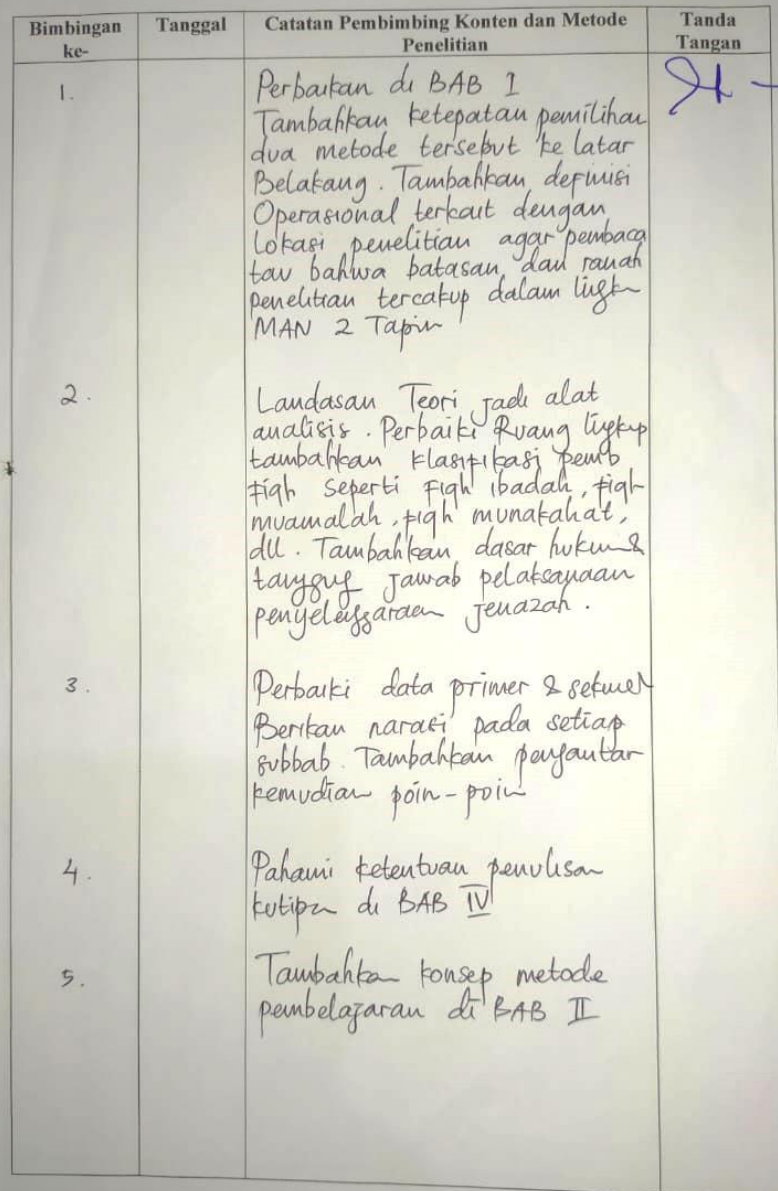 Bimbingan ke-
Tanggal
Catatan Pembimbing Konten dan Metode Penelitian
Tanda Tangan
1.
Perbaikan di BAB I
Tambahkan ketepatan pemilihan
dua metode tersebut ke latar
Belakang. Tambahkan definisi
Operasional terkait dengan
Lokasi penelitian agar pembaca
tau bahwa batasan dan ranah
penelitian tercakup dalam lingk
MAN 2 Tapin
2.
Landasan Teori jadi alat
analisis. Perbaiki Ruang lingkup
tambahkan klasifikasi pemb
fiqh seperti fiqh ibadah, fiqh
muamalah, fiqh munakahat,
dll. Tambahkan dasar hukum &
tanggung jawab pelaksanaan
penyelenggaraan jenazah.
3.
Perbaiki data primer & sekunder
Berikan narasi pada setiap
subbab. Tambahkan pengantar
kemudian poin-poin
4.
Pahami ketentuan penulisan
kutipan di BAB IV
5.
Tambahkan konsep metode
pembelajaran di BAB II